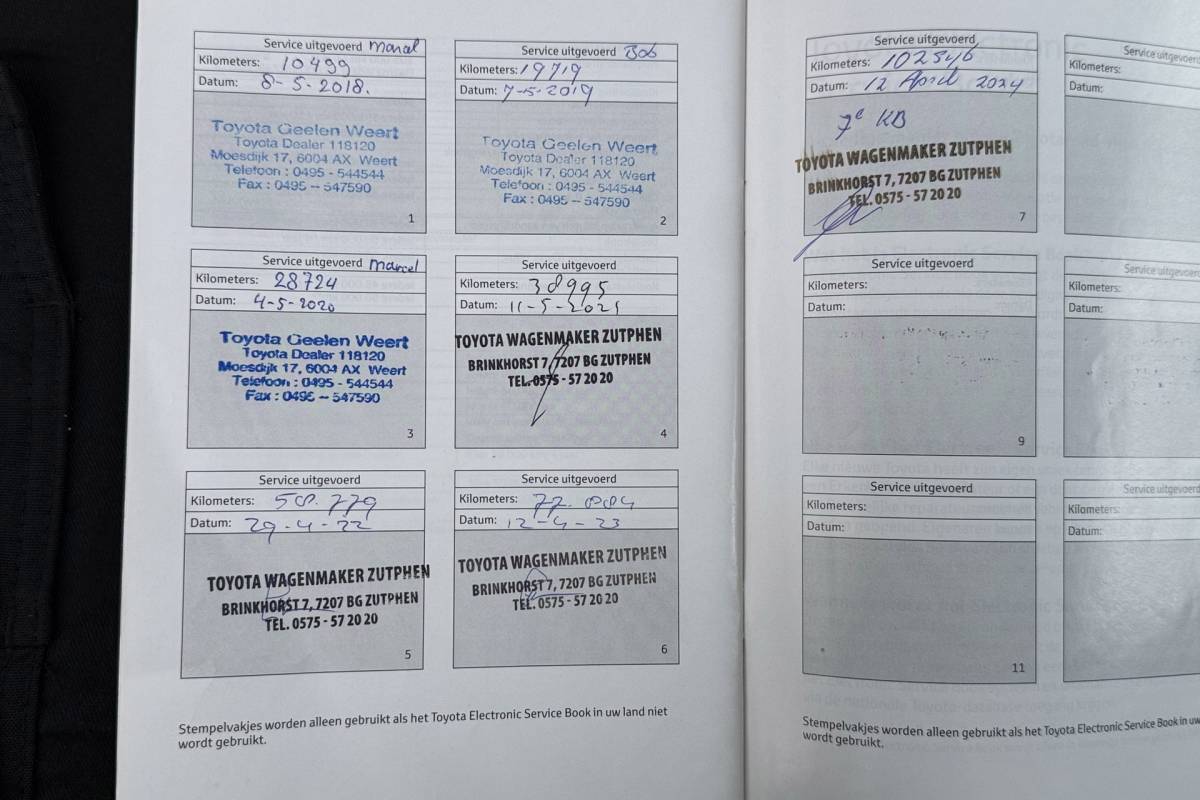 Service uitgevoerd Marcel
Kilometers: 10499
Datum: 8-5-2018.
Toyota Geelen Weert
Toyota Dealer 118120
Moesdijk 17, 6004 AX Weert
Telefoon : 0495 - 544544
Fax : 0495 - 547590
1
Service uitgevoerd Bob
Kilometers: 19719
Datum: 7-5-2019
Toyota Geelen Weert
Toyota Dealer 118120
Moesdijk 17, 6004 AX Weert
Telefoon : 0495 - 544544
Fax : 0495 - 547590
2
Service uitgevoerd Marcel
Kilometers: 28724
Datum: 4-5-2020
Toyota Geelen Weert
Toyota Dealer 118120
Moesdijk 17, 6004 AX Weert
Telefoon : 0495 - 544544
Fax : 0495 - 547590
3
Service uitgevoerd
Kilometers: 38995
Datum: 11-5-2021
TOYOTA WAGENMAKER ZUTPHEN
BRINKHORST 7, 7207 BG ZUTPHEN
TEL. 0575 - 57 20 20
4
Service uitgevoerd
Kilometers: 58.779
Datum: 29-4-22
TOYOTA WAGENMAKER ZUTPHEN
BRINKHORST 7, 7207 BG ZUTPHEN
TEL. 0575 - 57 20 20
5
Service uitgevoerd
Kilometers: 77.884
Datum: 12-4-23
TOYOTA WAGENMAKER ZUTPHEN
BRINKHORST 7, 7207 BG ZUTPHEN
TEL. 0575 - 57 20 20
6
Stempelvakjes worden alleen gebruikt als het Toyota Electronic Service Book in uw land niet
wordt gebruikt.
Service uitgevoerd
Kilometers: 102546
Datum: 12 April 2024
7e KB
TOYOTA WAGENMAKER ZUTPHEN
BRINKHORST 7, 7207 BG ZUTPHEN
TEL. 0575 - 57 20 20
7
Service uitgevoerd
Kilometers:
Datum:
Service uitgevoerd
Kilometers:
Datum:
9
Service uitgevoerd
Kilometers:
Datum:
Service uitgevoerd
Kilometers:
Datum:
11
Service uitgevoerd
Kilometers:
Datum:
Stempelvakjes worden alleen gebruikt als het Toyota Electronic Service Book in uw
wordt gebruikt.